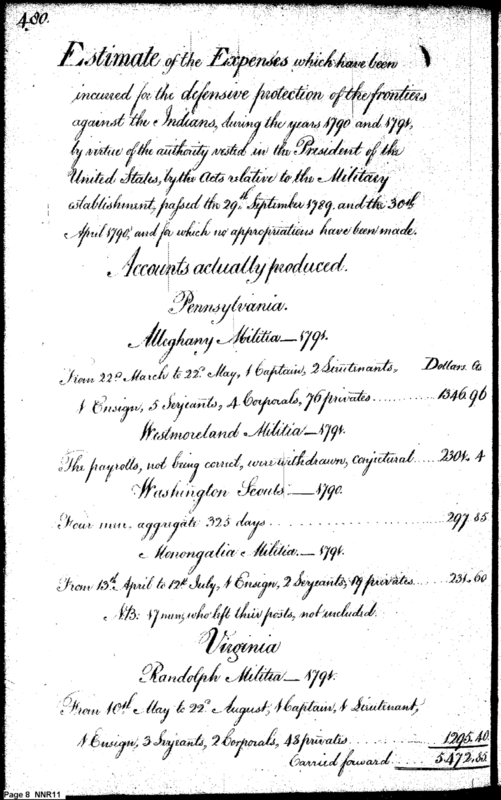 480.
Estimate of the Expenses which have been
incurred for the defensive protection of the frontiers
against the Indians, during the years 1790 and 1791,
by virtue of the authority vested in the President of the
United States, by the Acts relative to the Military
establishment, passed the 29th September 1789, and the 30th
April 1790, and for which no appropriations have been made.
Accounts actually produced.
Pennsylvania.
Alleghany Militia — 1791.
Dollars. Cts
From 22d March to 22d May, 1 Captain, 2 Lieutenants,
1 Ensign, 5 Serjeants, 4 Corporals, 76 privates ........ 1346.96
Westmoreland Militia — 1791.
The payrolls, not being correct, were withdrawn, conjectural .... 2301. 4
Washington Scouts — 1790.
Four men, aggregate 325 days .................... 297.85
Monongalia Militia. — 1791.
From 13th April to 12th July, 1 Ensign, 2 Serjeants, 19 privates ..... 231.60
N.B: 17 men, who left their posts, not included.
Virginia
Randolph Militia — 1791.
From 10th May to 22d August, 1 Captain, 1 Lieutenant,
1 Ensign, 3 Serjeants, 2 Corporals, 43 privates .......... 1295.40
Carried forward .... 5.472.85
Page 8 NNR11